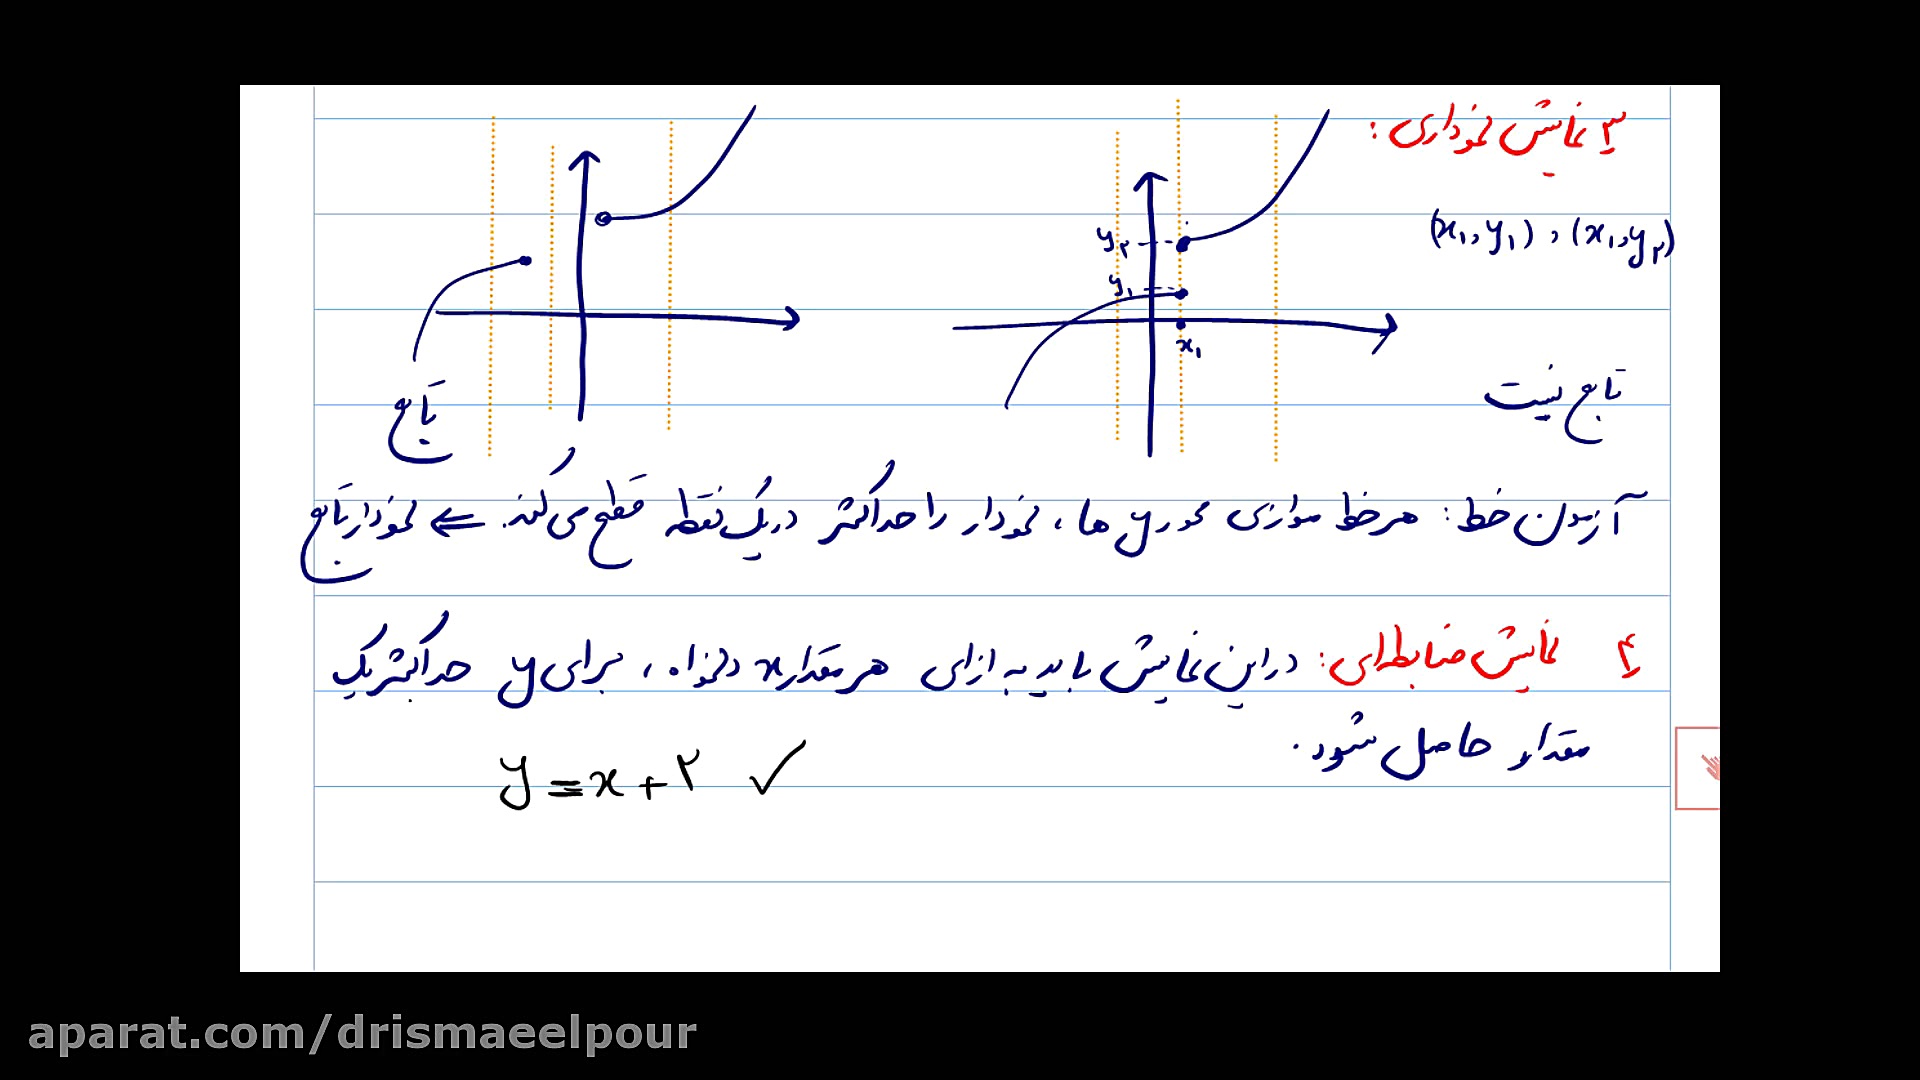 ۳ نمایش نموداری:
(x₁,y₁) , (x₁,y₂)
y₂
y₁
x₁
تابع نیست
تابع
آزمون خط: هر خط موازی محور y ها، نمودار را حداکثر در یک نقطه قطع می‌کند. ⇐ نمودار تابع
۴ نمایش ضابطه‌ای: در این نمایش باید به ازای هر مقدار x دلخواه، برای y حداکثر یک
مقدار حاصل شود.
y = x + ۲ ✓
aparat.com/drismaeelpour